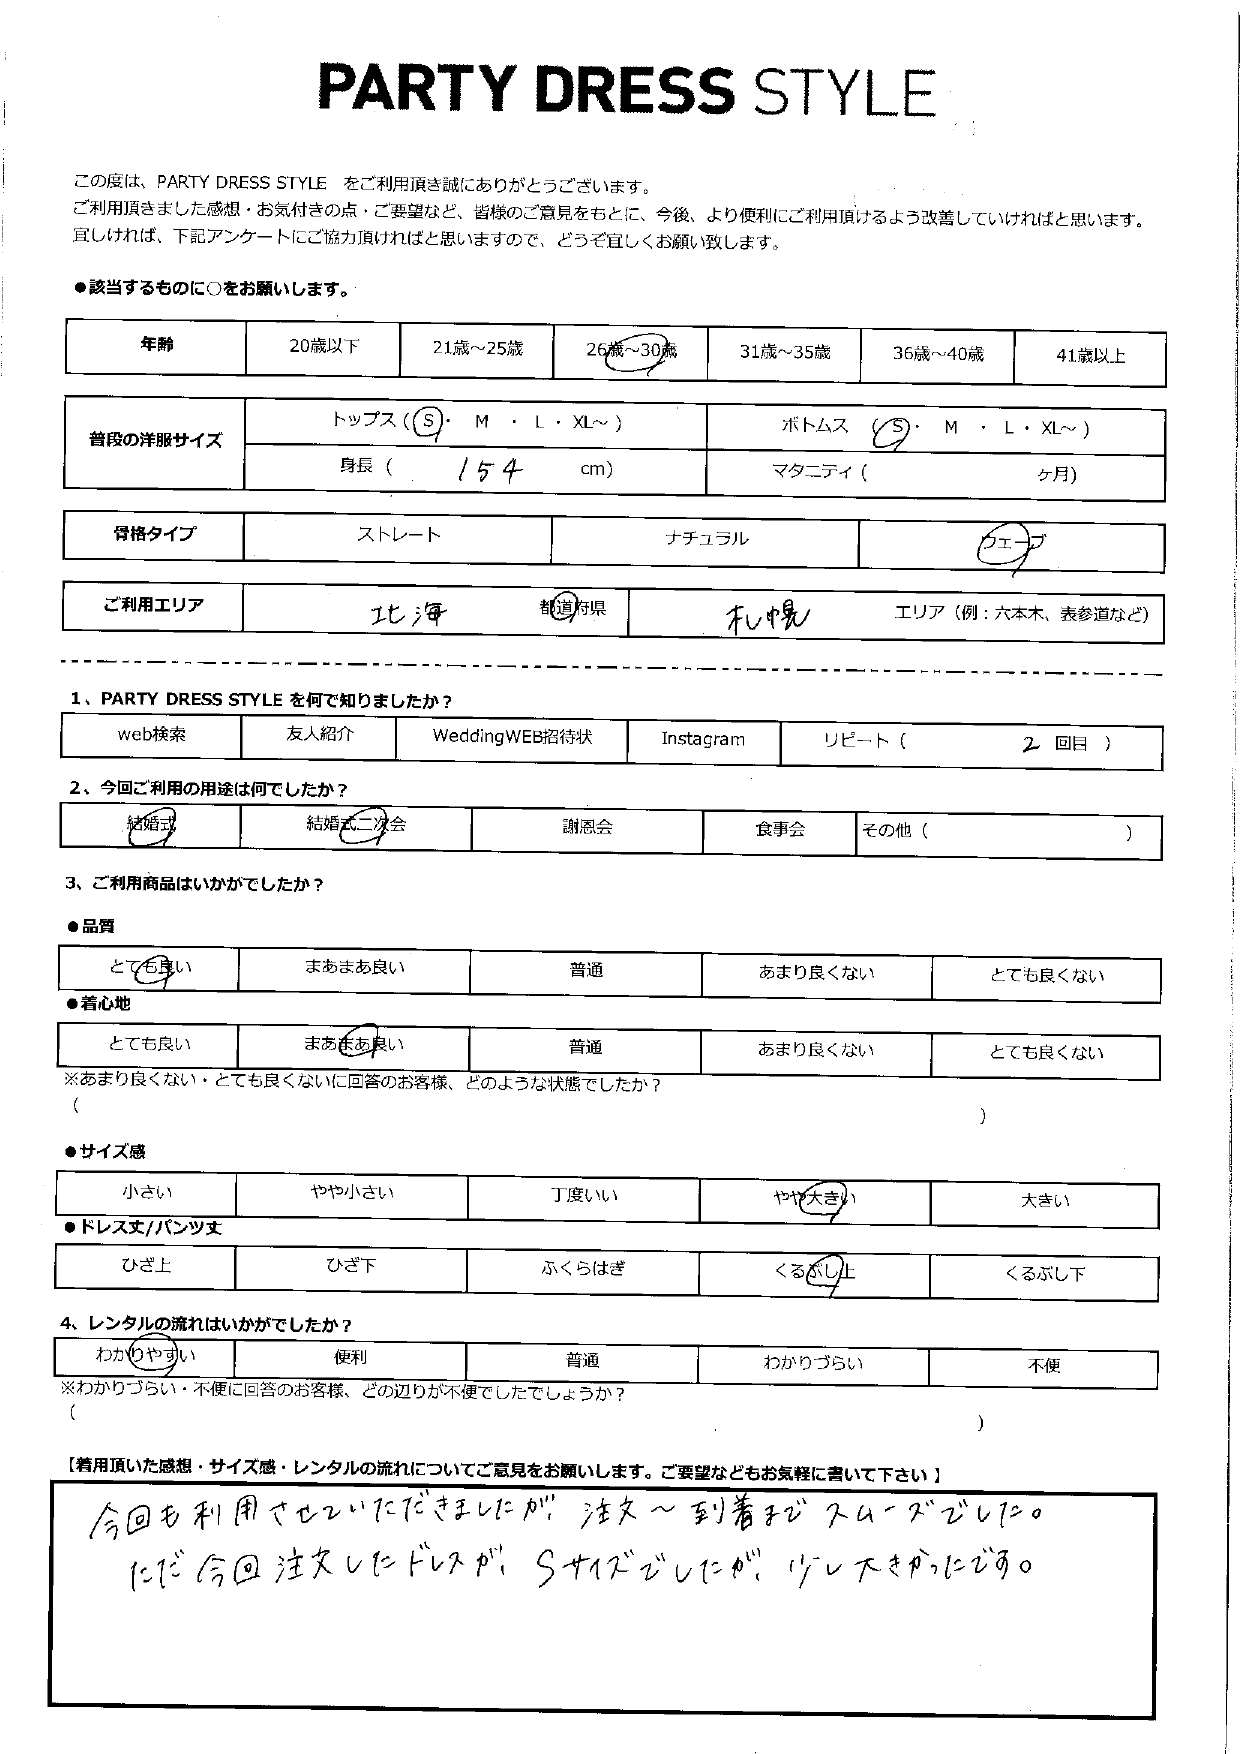 PARTY DRESS STYLE
この度は、PARTY DRESS STYLE をご利用頂き誠にありがとうございます。
ご利用頂きました感想・お気付きの点・ご要望など、皆様のご意見をもとに、今後、より便利にご利用頂けるよう改善していければと思います。
宜しければ、下記アンケートにご協力頂ければと思いますので、どうぞ宜しくお願い致します。
●該当するものに○をお願いします。
年齢 20歳以下 21歳～25歳 26歳～30歳 31歳～35歳 36歳～40歳 41歳以上
普段の洋服サイズ
トップス（S・ M ・ L ・ XL～ ） ボトムス （S・ M ・ L・ XL～ ）
身長（ 154 cm） マタニティ（ ヶ月）
骨格タイプ ストレート ナチュラル ウェーブ
ご利用エリア 北海 都道府県 札幌 エリア（例：六本木、表参道など）
1、PARTY DRESS STYLE を何で知りましたか？
web検索 友人紹介 WeddingWEB招待状 Instagram リピート（ 2 回目 ）
2、今回ご利用の用途は何でしたか？
結婚式 結婚式二次会 謝恩会 食事会 その他（ ）
3、ご利用商品はいかがでしたか？
●品質
とても良い まあまあ良い 普通 あまり良くない とても良くない
●着心地
とても良い まあまあ良い 普通 あまり良くない とても良くない
※あまり良くない・とても良くないに回答のお客様、どのような状態でしたか？
（ ）
●サイズ感
小さい やや小さい 丁度いい やや大きい 大きい
●ドレス丈/パンツ丈
ひざ上 ひざ下 ふくらはぎ くるぶし上 くるぶし下
4、レンタルの流れはいかがでしたか？
わかりやすい 便利 普通 わかりづらい 不便
※わかりづらい・不便に回答のお客様、どの辺りが不便でしたでしょうか？
（ ）
【着用頂いた感想・サイズ感・レンタルの流れについてご意見をお願いします。ご要望などもお気軽に書いて下さい 】
今回も利用させていただきましたが、注文～到着までスムーズでした。
ただ今回注文したドレスが、Sサイズでしたが、少し大きかったです。